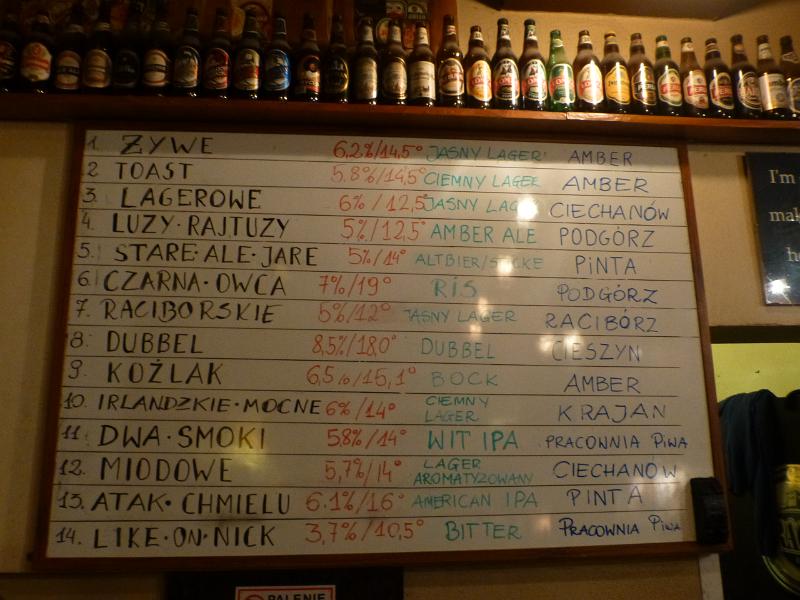 1. ŻYWE 6,2%/14,5° JASNY LAGER AMBER
2 TOAST 5,8%/14,5° CIEMNY LAGER AMBER
3. LAGEROWE 6%/12,5° JASNY CIECHANÓW
4. LUZY·RAJTUZY 5%/12,5° AMBER ALE PODGÓRZ
5. STARE·ALE·JARE 5%/14° ALTBIER/ PINTA
6. CZARNA·OWCA 7%/19° RIS PODGÓRZ
7. RACIBORSKIE 5%/12° JASNY LAGER RACIBÓRZ
8. DUBBEL 8,5%/18,0° DUBBEL CIESZYN
9. KOŹLAK 6,5%/15,1° BOCK AMBER
10. IRLANDZKIE·MOCNE 6%/14° CIEMNY LAGER KRAJAN
11. DWA·SMOKI 5,8%/14° WIT IPA PRACOWNIA PIWA
12. MIODOWE 5,7%/14° LAGER AROMATYZOWANY CIECHANÓW
13. ATAK·CHMIELU 6.1%/16° AMERICAN IPA PINTA
14. LIKE·ON·NICK 3,7%/10,5° BITTER PRACOWNIA PIWA
I'm
PALENIE